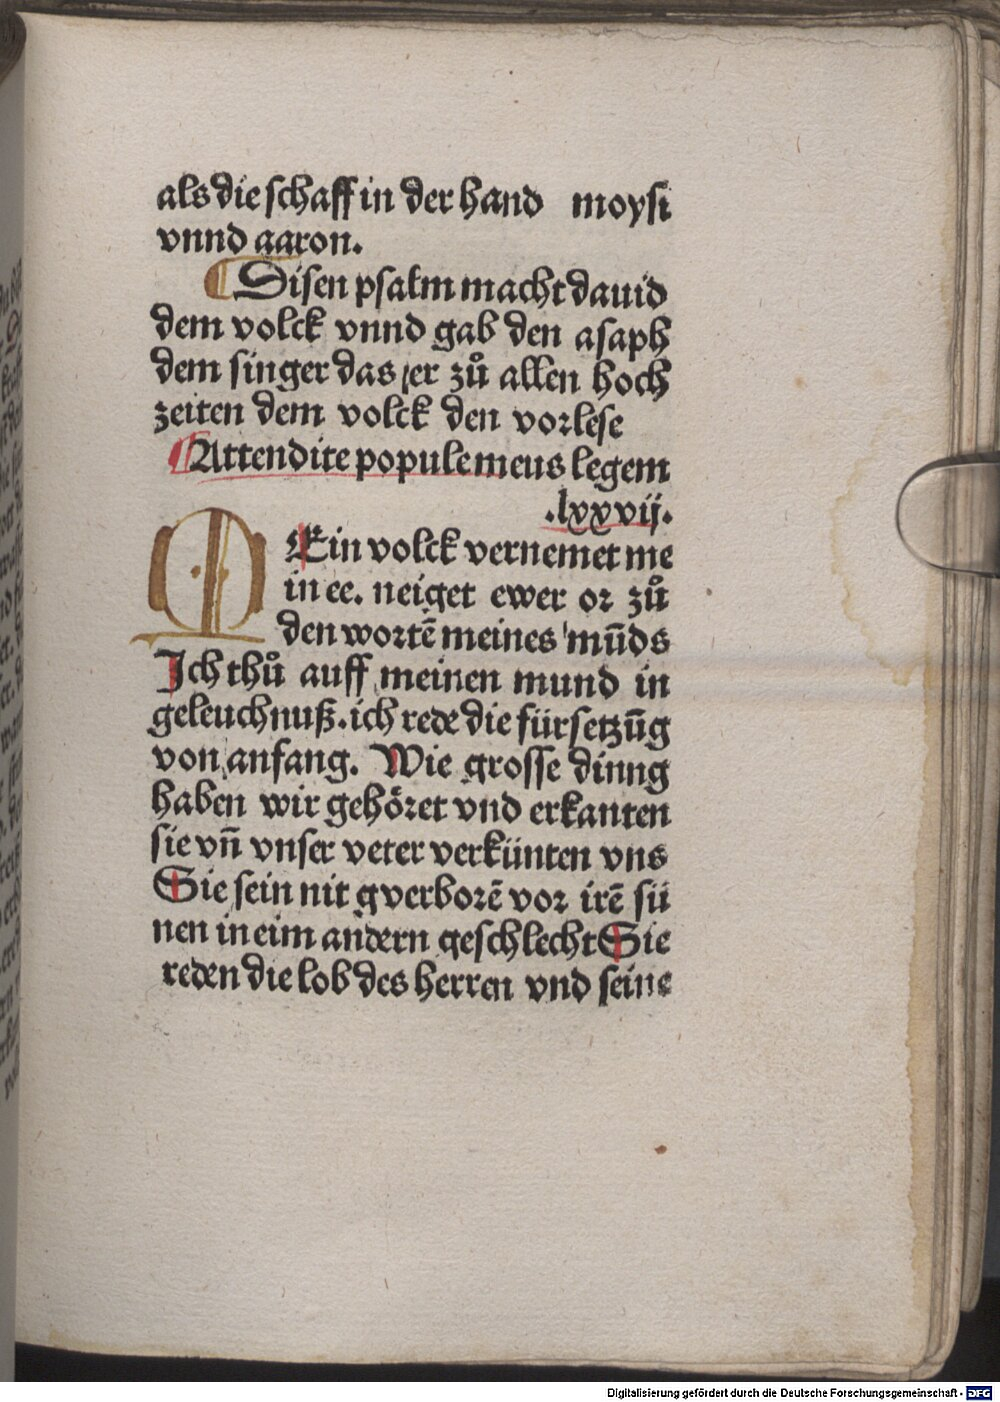 als die schaff in der hand moysi
vnnd aaron.
Disen psalm macht dauid
dem volck vnnd gab den asaph
dem singer das er zů allen hoch
zeiten dem volck den vorlese
Attendite popule meus legem
.lxxvij.
MEin volck vernemet me
in ee. neiget ewer or zů
den wortē meines mūds
Ich thů auff meinen mund in
geleuchnuß. ich rede die fürsetzūg
von anfang. Wie grosse dinng
haben wir gehöret vnd erkanten
sie vn̄ vnser veter verkünten vns
Sie sein nit gverborē vor irē sü
nen in eim andern geschlecht Sie
reden die lob des herren vnd seine
Digitalisierung gefördert durch die Deutsche Forschungsgemeinschaft - DFG